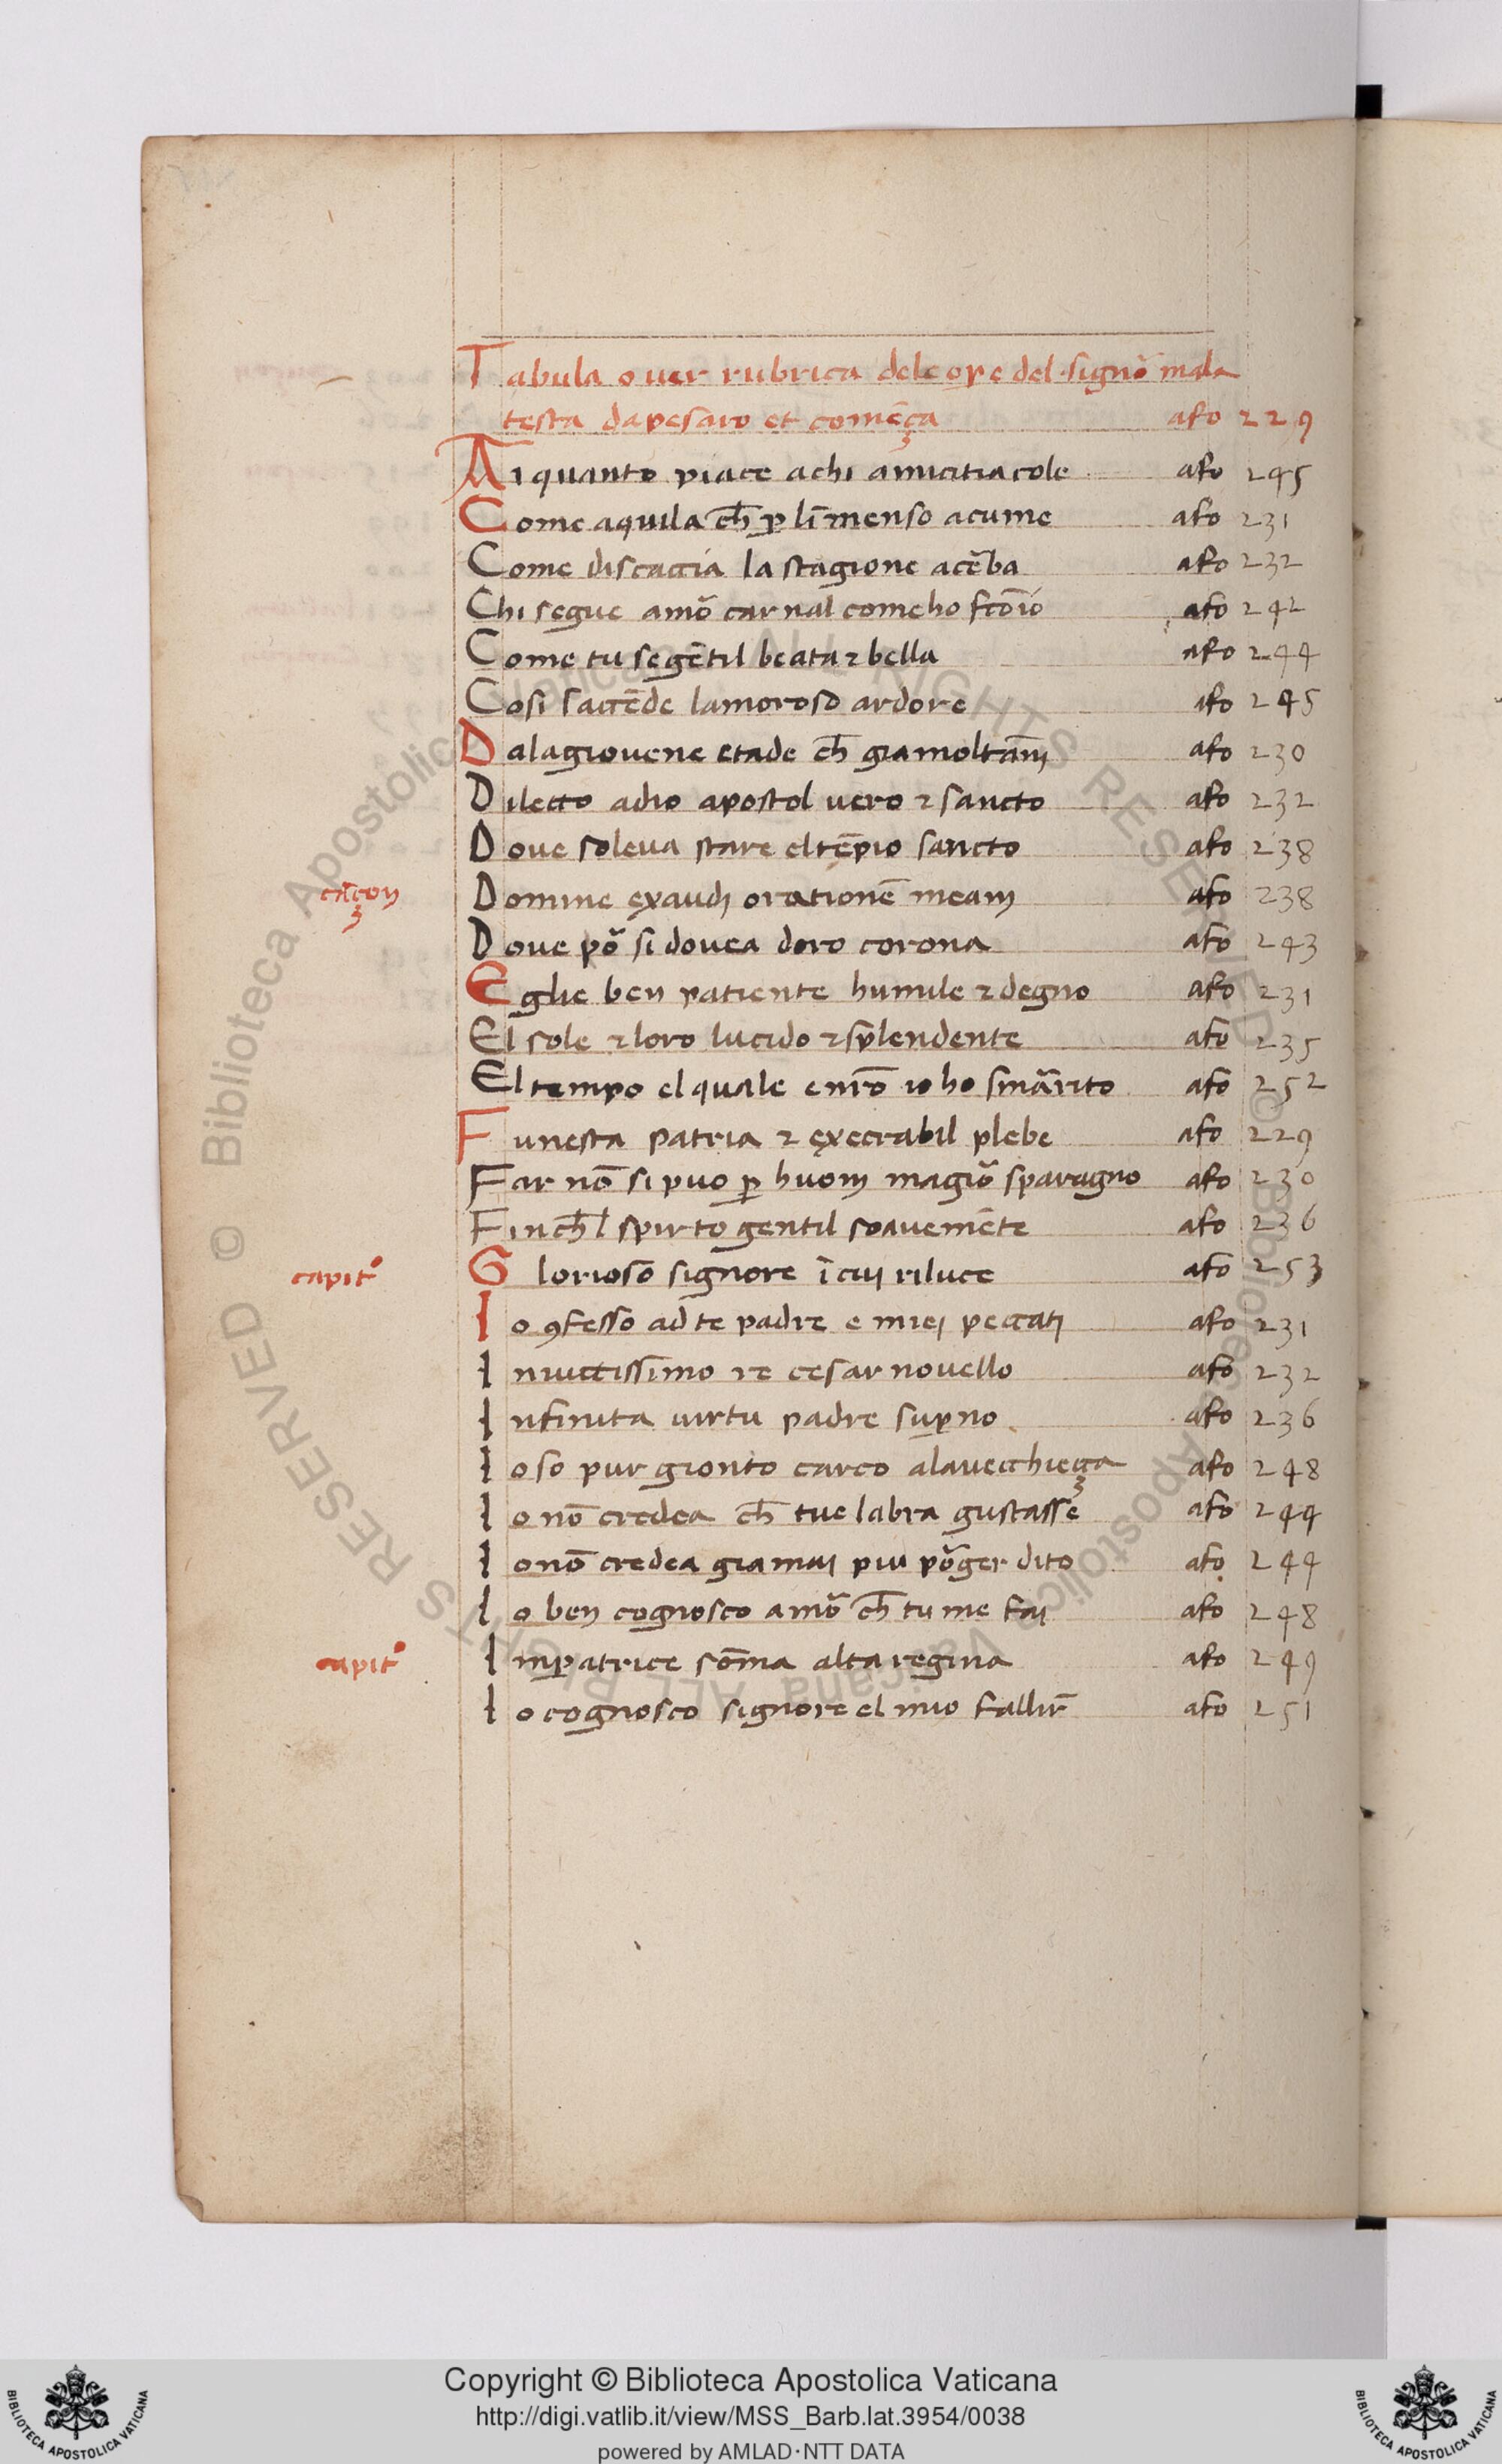 Tabula over rubrica dele ope del signõ mala
testa dapesaro et comẽça afo 229
Ai quanto piace achi amicitia cole afo 245
Come aquila ch̃ ꝑ lĩmenso acume afo 231
Come discaccia la stagione acẽba afo 232
Chi segue amõ carnal come ho fcõ io afo 242
Come tu se gẽtil beata ⁊ bella afo 244
Cosi saccẽde lamoroso ardore afo 245
Dalagiovene etade ch̃ gia moltãnj afo 230
Dilecto adio apostol vero ⁊ sancto afo 232
Dove soleva stare el tẽpio sancto afo 238
cãçon Domine exaudj orationẽ meam afo 238
Dove põ si dovea doro corona afo 243
Eglie ben patiente humile ⁊ degno afo 231
El sole ⁊ loro lucido ⁊ splendente afo 235
El tempo el quale io ho smãrito afo 252
Funesta patria ⁊ execrabil plebe afo 229
Far nõ si puo ꝑ huom magiõ sparagno afo 230
Finch̃l spirto gentil soavemẽte afo 236
capitº Glorioso signore ĩ cuj riluce afo 253
Io ꝯfesso ad te padre e miej peccatj afo 231
Invictissimo re cesar novello afo 232
Infinita virtu padre suꝑno afo 236
Io so pur gionto carco alavecchieça afo 248
Io nõ credea ch̃ tue labra gustasse afo 244
Io nõ credea giamaj piu põger dito afo 244
Io ben cognosco amõ ch̃ tu me faj afo 248
capitº Imꝑatrice sõma alta regina afo 249
Io cognosco signore el mio fallir̃ afo 251
Copyright © Biblioteca Apostolica Vaticana
http://digi.vatlib.it/view/MSS_Barb.lat.3954/0038
powered by AMLAD·NTT DATA
BIBLIOTECA APOSTOLICA VATICANA
BIBLIOTECA APOSTOLICA VATICANA